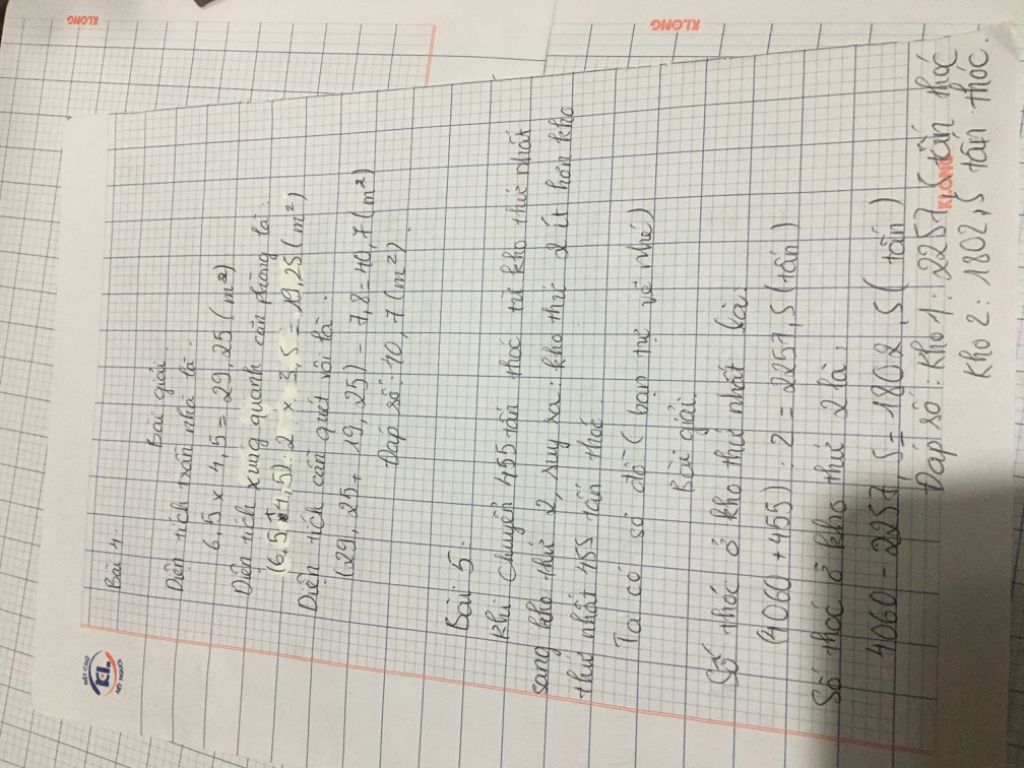 KLONG
KLONG
NÉT CHỮ
KL
NẾT NGƯỜI
Bài 4.
Bài giải
Diện tích trần nhà là:
6,5 x 4,5 = 29,25 (m²)
Diện tích xung quanh căn phòng là:
(6,5 + 4,5) : 2 x 3,5 = 19,25 (m²)
Diện tích cần quét vôi là:
(29,25 + 19,25) - 7,8 = 40,7 (m²)
Đáp số: 40,7 (m²).
Bài 5.
Khi chuyển 455 tấn thóc từ kho thứ nhất
sang kho thứ 2, suy ra: kho thứ 2 ít hơn kho
thứ nhất 455 tấn thóc
Ta có sơ đồ (bạn tự vẽ nhé)
Bài giải.
Số thóc ở kho thứ nhất là:
(4060 + 455) : 2 = 2257,5 (tấn)
Số thóc ở kho thứ 2 là:
4060 - 2257,5 = 1802,5 (tấn)
Đáp số: Kho 1: 2257,5 tấn thóc
Kho 2: 1802,5 tấn thóc.
KLONG